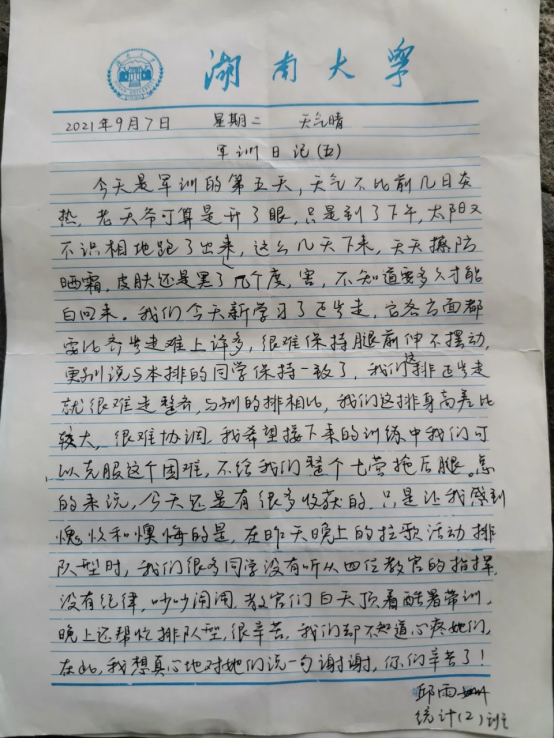 湖南大学
2021年9月7日 星期二 天气晴
军训日记(五)
今天是军训的第五天,天气不比前几日炎
热,老天爷可算是开了眼,只是到了下午,太阳又
不识相地跑了出来,这么几天下来,天天擦防
晒霜,皮肤还是黑了几个度,害,不知道要多久才能
白回来。我们今天新学习了正步走,它各方面都
要比齐步走难上许多,很难保持腿前伸不摆动,
更别说与本排的同学保持一致了,我们这排正步走
就很难走整齐,与别的排相比,我们这排身高差比
较大,很难协调。我希望接下来的训练中我们可
以克服这个困难,不给我们整个七营拖后腿。总
的来说,今天还是有很多收获的,只是让我感到
愧疚和懊悔的是,在昨天晚上的拉歌活动排
队型时,我们很多同学没有听从四位教官的指挥,
没有纪律,吵吵闹闹,教官们白天顶着酷暑带训,
晚上还帮忙排队型,很辛苦,我们却不知道心疼她们,
在此,我想真心地对她们说一句谢谢,你们辛苦了!
邱雨
统计(2)班